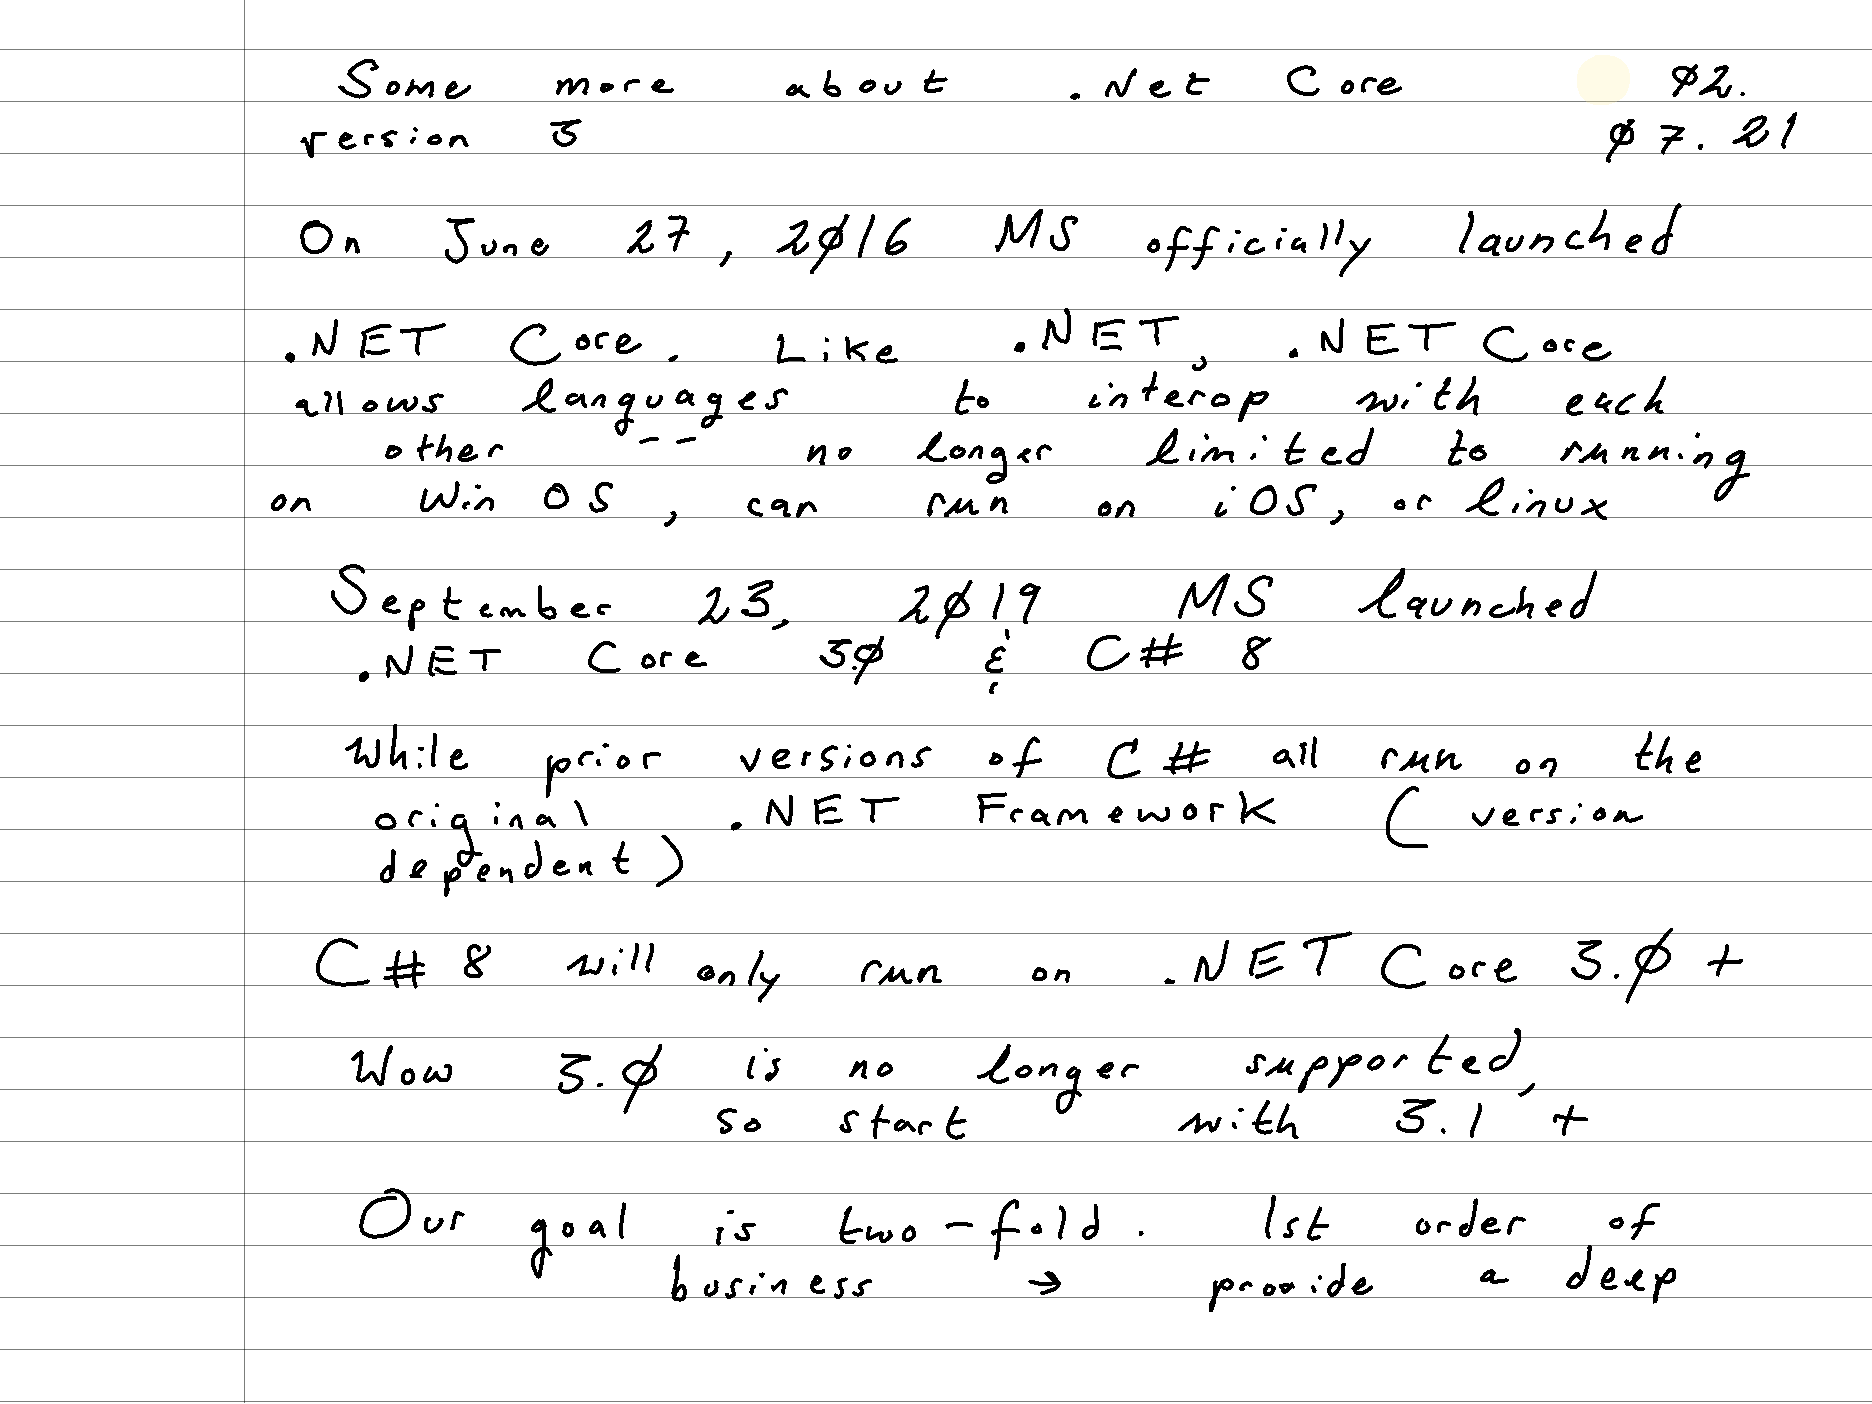 Some more about .Net Core ø2.
version 3 ø7.21
On June 27, 2ø16 MS officially launched
.NET Core. Like .NET, .NET Core
allows languages to interop with each
other -- no longer limited to running
on Win OS, can run on iOS, or linux
September 23, 2ø19 MS launched
.NET Core 3.ø & C# 8
While prior versions of C# all run on the
original .NET Framework (version
dependent)
C# 8 will only run on .NET Core 3.ø +
Wow 3.ø is no longer supported,
so start with 3.1 +
Our goal is two-fold. 1st order of
business → provide a deep